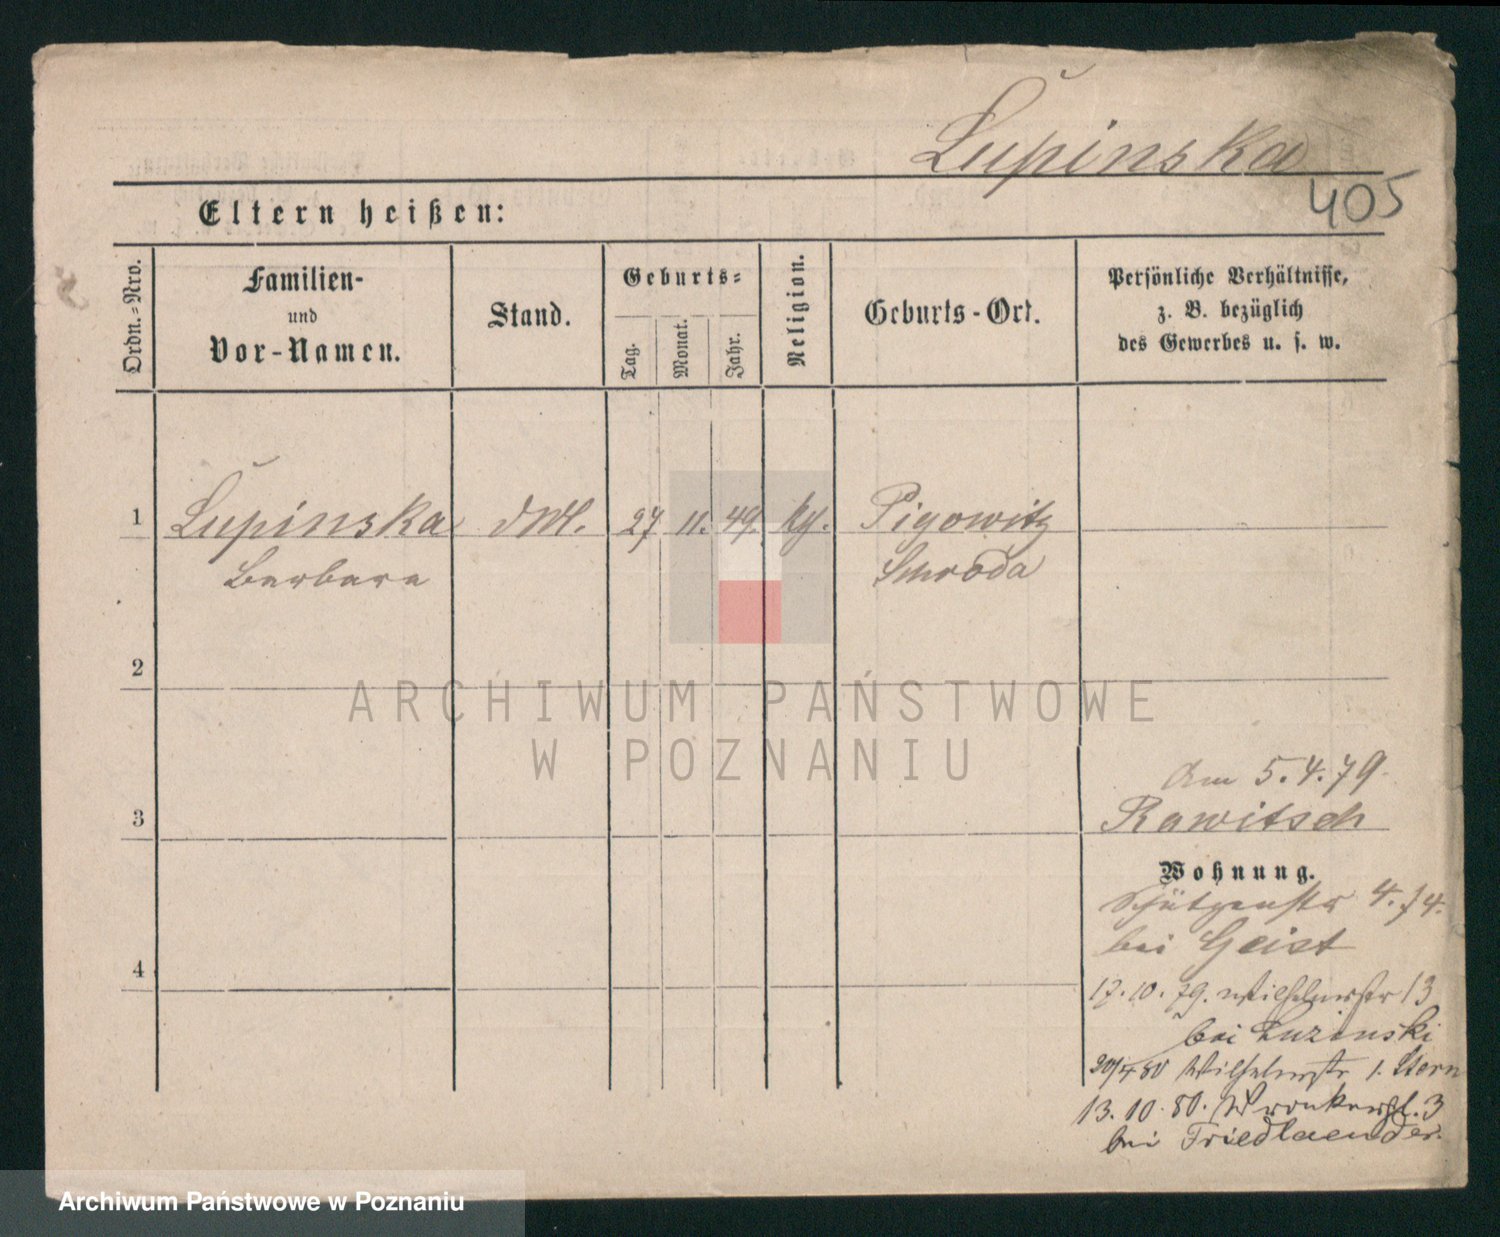 Łupinska
405
Eltern heißen:
Ordn.-Nro.
Familien-
und
Vor-Namen.
Stand.
Geburts-
Tag.
Monat.
Jahr.
Religion.
Geburts-Ort.
Persönliche Verhältnisse,
z. B. bezüglich
des Gewerbes u. s. w.
1 Łupinska 27 11. 49. Pigowitz
Barbara Schroda
2
ARCHIWUM PAŃSTWOWE
W POZNANIU
am 5.4.79
3 Rawitsch
Wohnung.
Schützenstr 4.
bei Geist
4
17.10.79. Wilhelmstr 13
bei Luzinski
20/4 80 Wilhelmstr 1. Stern
13.10.80. Wronkerstr. 3
bei Friedlaender.
Archiwum Państwowe w Poznaniu